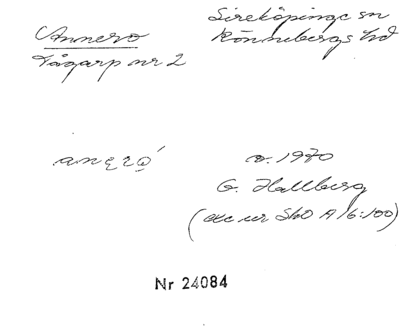 Annero
Tågarp nr 2
Sireköpinge sn
Rönnebergs hd
v. 1970
G. Hallberg
(exc ur SkO A 16:100)
Nr 24084